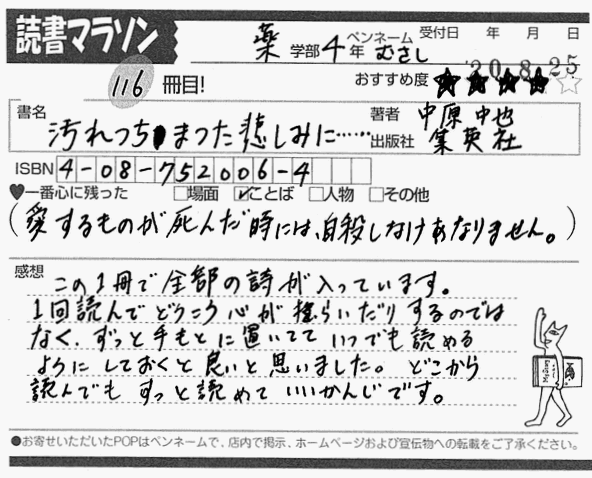 読書マラソン
薬 学部 4 年 ペンネーム むさし 受付日 年 月 日
'20.8.25
116 冊目! おすすめ度 ★★★★☆
書名 汚れつちまつた悲しみに…… 著者 中原中也
出版社 集英社
ISBN 4-08-752006-4
♥一番心に残った □場面 ☑ことば □人物 □その他
(愛するものが死んだ時には、自殺しなけあなりません。)
感想 この1冊で全部の詩が入っています。
1回読んでどうこう心が揺らいだりするのでは
なく、ずっと手もとに置いてて いつでも読める
ようにしておくと良いと思いました。 どこから
読んでも すっと読めて いいかんじです。
●お寄せいただいたPOPはペンネームで、店内で掲示、ホームページおよび宣伝物への転載をご了承ください。